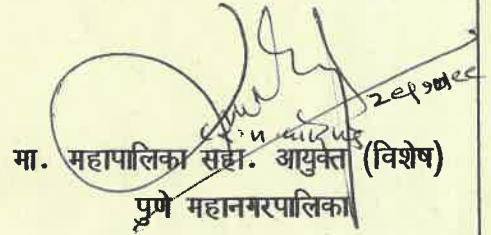 मा. महापालिका सहा. आयुक्त (विशेष)
पुणे महानगरपालिका